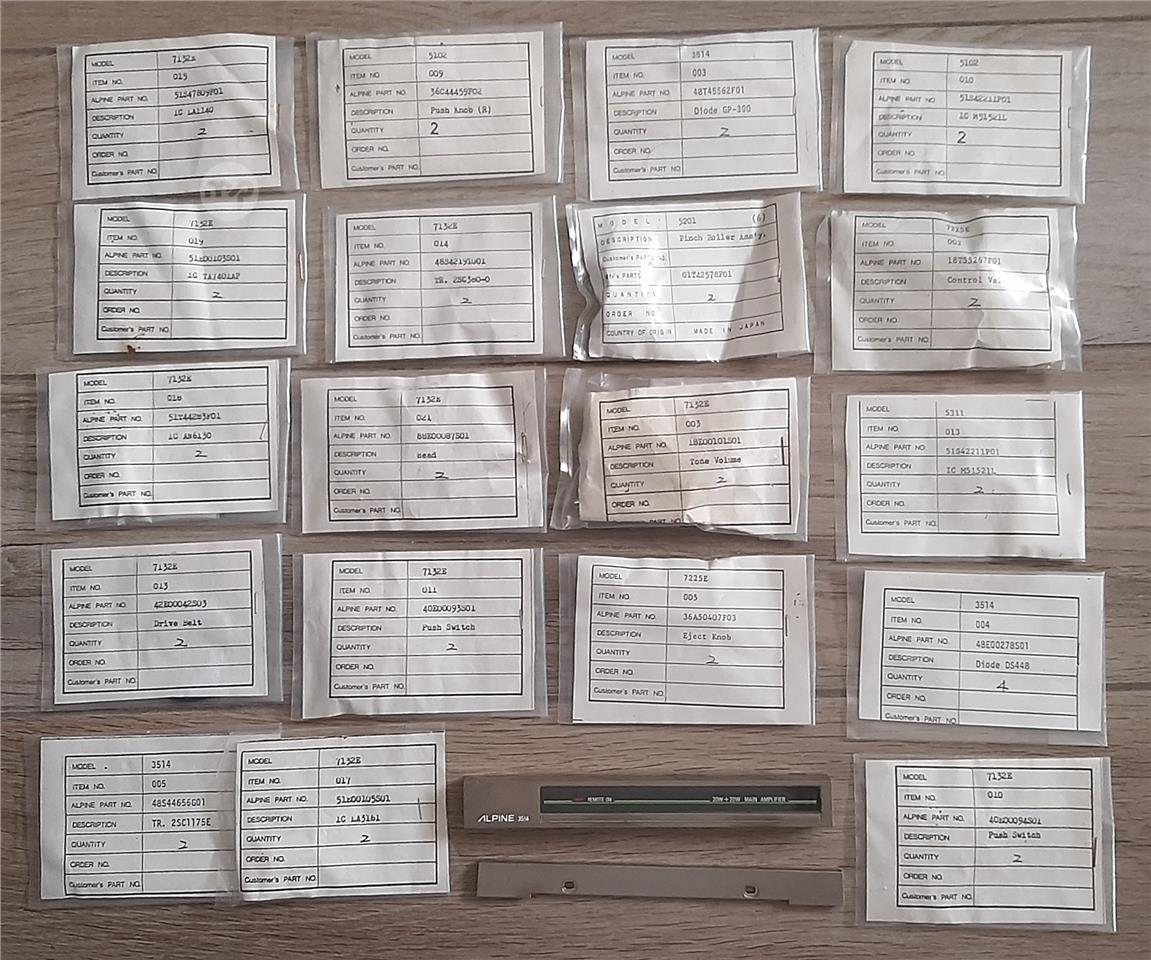 MODEL 7132E
ITEM NO. 015
ALPINE PART NO. 51S47809F01
DESCRIPTION IC LA1140
QUANTITY 2
ORDER NO.
Customer's PART NO.
MODEL 5102
ITEM NO. 009
ALPINE PART NO. 36C44459F02
DESCRIPTION Push Knob (R)
QUANTITY 2
ORDER NO.
Customer's PART NO.
MODEL 3514
ITEM NO. 003
ALPINE PART NO. 48T45562F01
DESCRIPTION Diode GP-100
QUANTITY 2
ORDER NO.
Customer's PART NO.
MODEL 5102
ITEM NO. 010
ALPINE PART NO. 51S42211F01
DESCRIPTION IC M51521L
QUANTITY 2
ORDER NO.
Customer's PART NO.
MODEL 7132E
ITEM NO. 019
ALPINE PART NO. 51E00103S01
DESCRIPTION IC TA7401AP
QUANTITY 2
ORDER NO.
Customer's PART NO.
MODEL 7132E
ITEM NO. 014
ALPINE PART NO.
DESCRIPTION TR. 2SC380-O
QUANTITY 2
ORDER NO.
Customer's PART NO.
MODEL 5201 (6)
DESCRIPTION Pinch Roller Ass'y.
Customer's PARTS NO.
Mfr's PARTS 01T42578F01
QUANTITY 2
ORDER NO
COUNTRY OF ORIGIN MADE IN JAPAN
MODEL 7225E
ITEM NO. 001
ALPINE PART NO. 18T53267F01
DESCRIPTION Control
QUANTITY 2
ORDER NO.
Customer's PART NO.
MODEL 7132E
ITEM NO. 018
ALPINE PART NO. 51T44283F01
DESCRIPTION IC AN6130
QUANTITY 2
ORDER NO.
Customer's PART NO.
MODEL 7132E
ITEM NO. 021
ALPINE PART NO. 88E00087S01
DESCRIPTION Head
QUANTITY 2
ORDER NO.
Customer's PART NO.
MODEL 7132E
ITEM NO. 003
ALPINE PART NO. 18E00101S01
DESCRIPTION Tone Volume
QUANTITY 2
ORDER NO.
Customer's PART NO.
MODEL 5311
ITEM NO. 013
ALPINE PART NO. 51S42211F01
DESCRIPTION IC M51521L
QUANTITY 2
ORDER NO.
Customer's PART NO.
MODEL 7132E
ITEM NO. 013
ALPINE PART NO. 42E00042S03
DESCRIPTION Drive Belt
QUANTITY 2
ORDER NO.
Customer's PART NO.
MODEL 7132E
ITEM NO. 011
ALPINE PART NO. 40E00093S01
DESCRIPTION Push Switch
QUANTITY 2
ORDER NO.
Customer's PART NO.
MODEL 7225E
ITEM NO. 005
ALPINE PART NO. 36A50407F03
DESCRIPTION Eject Knob
QUANTITY 2
ORDER NO.
Customer's PART NO.
MODEL 3514
ITEM NO. 004
ALPINE PART NO. 48E00278S01
DESCRIPTION Diode DS448
QUANTITY 4
ORDER NO.
Customer's PART NO
MODEL 3514
ITEM NO. 005
ALPINE PART NO. 48S44656G01
DESCRIPTION TR. 2SC1175E
QUANTITY 2
ORDER NO.
Customer's PART NO.
MODEL 7132E
ITEM NO. 017
ALPINE PART NO. 51E00105S01
DESCRIPTION IC LA3161
QUANTITY 2
ORDER NO.
Customer's PART NO.
REMOTE ON 20W + 20W MAIN AMPLIFIER
ALPINE 3514
MODEL 7132E
ITEM NO. 010
ALPINE PART NO. 40E00094S01
DESCRIPTION Push Switch
QUANTITY 2
ORDER NO.
Customer's PART NO.